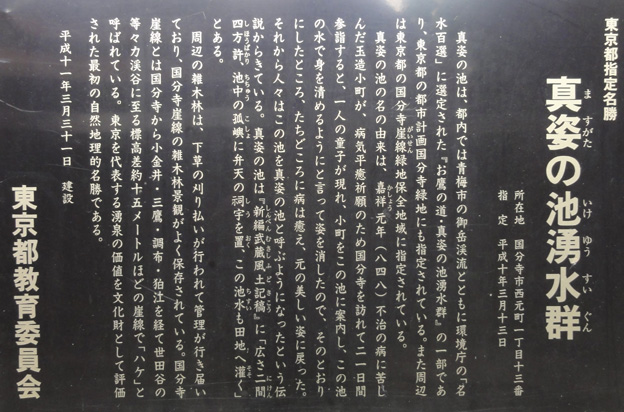 東京都指定名勝
真姿の池湧水群
ますがた いけ ゆう すい ぐん
所在地 国分寺市西元町一丁目十三番
指定 平成十年三月十三日
真姿の池は、都内では青梅市の御岳渓流とともに環境庁の「名
水百選」に選定された『お鷹の道・真姿の池湧水群』の一部であ
り、東京都の都市計画国分寺緑地にも指定されている。また周辺
は東京都の国分寺崖線緑地保全地域に指定されている。
がいせん
真姿の池の名の由来は、嘉祥元年(八四八)不治の病に苦し
かしょう
んだ玉造小町が、病気平癒祈願のため国分寺を訪れて二一日間
参詣すると、一人の童子が現れ、小町をこの池に案内し、この池
の水で身を清めるようにと言って姿を消したので、そのとおり
にしたところ、たちどころに病は癒え、元の美しい姿に戻った。
それから人々はこの池を真姿の池と呼ぶようになったという伝
説からきている。真姿の池は『新編武蔵風土記稿』に「広さ二間
しんぺんむさしふどきこう にけん
四方許、池中の孤嶼に弁天の祠宇を置、この池水も田地へ灌く」
しほうばかり ちちゅう こしょ しう おく ちすい そそ
とある。
周辺の雑木林は、下草の刈り払いが行われて管理が行き届い
ており、国分寺崖線の雑木林景観がよく保存されている。国分寺
崖線とは国分寺から小金井・三鷹・調布・狛江を経て世田谷の
等々力渓谷に至る標高差約十五メートルほどの崖線で、「ハケ」と
呼ばれている。東京を代表する湧泉の価値を文化財として評価
された最初の自然地理的名勝である。
平成十一年三月三十一日 建設
東京都教育委員会